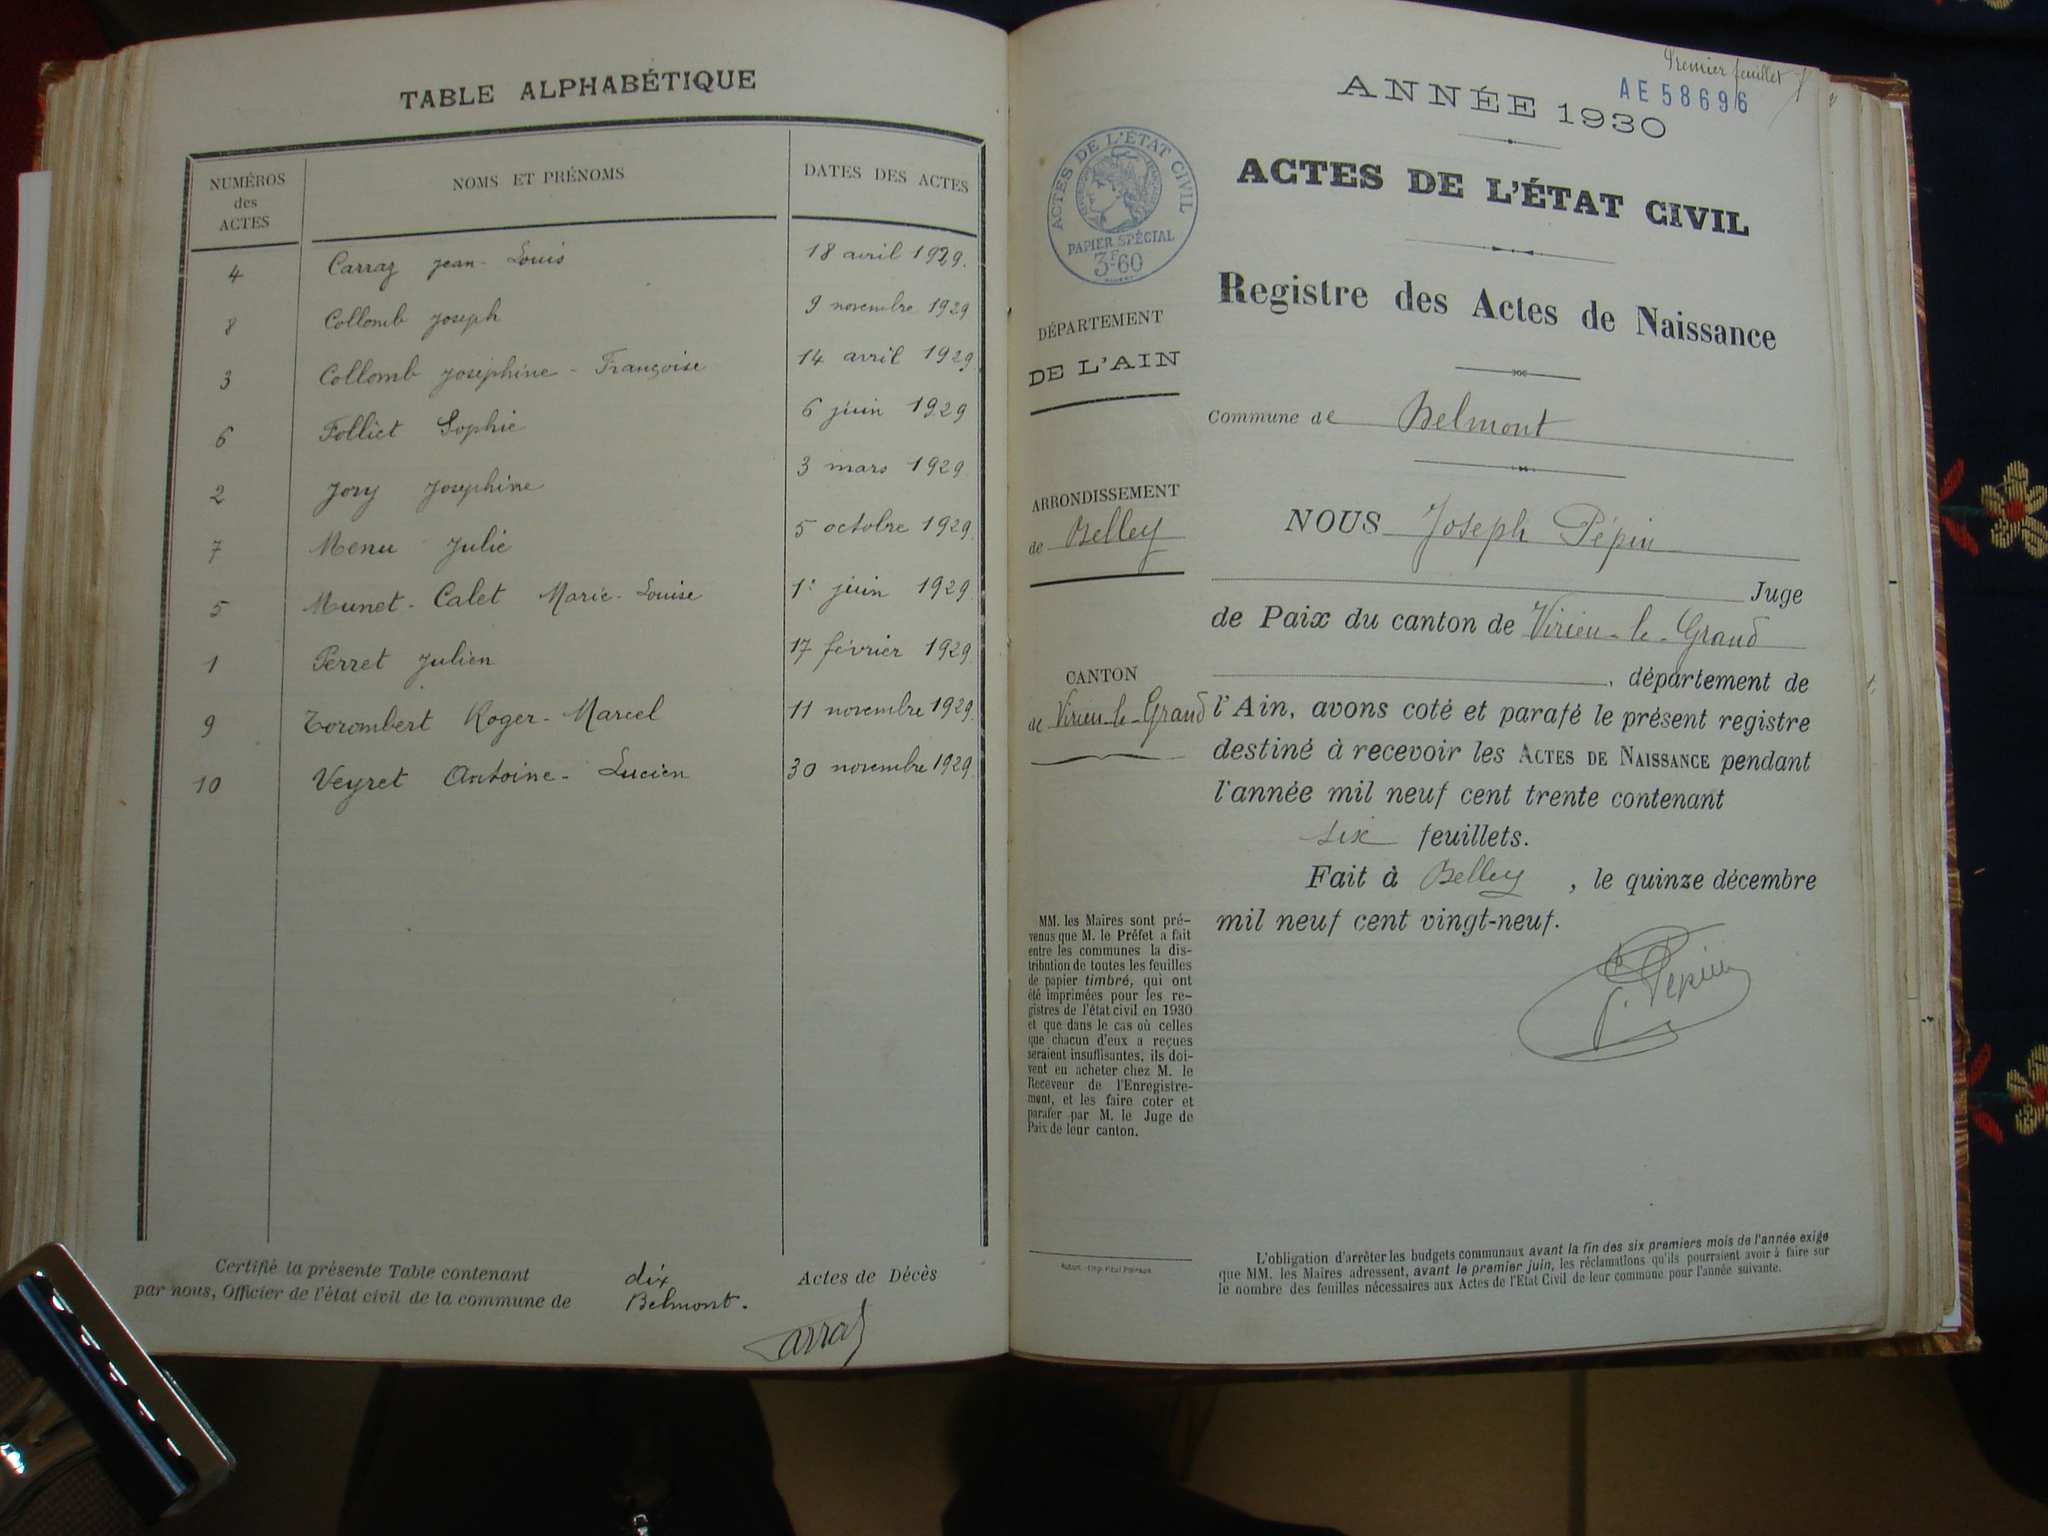 TABLE ALPHABÉTIQUE
NUMÉROS des ACTES
NOMS ET PRÉNOMS
DATES DES ACTES
4 Carraz Jean-Louis 18 avril 1929.
8 Collomb Joseph 9 novembre 1929
3 Collomb Joséphine-Françoise 14 avril 1929
6 Folliet Sophie 6 juin 1929
2 Jory Joséphine 3 mars 1929
7 Menu Julie 5 octobre 1929
5 Munet-Calet Marie-Louise 1er juin 1929
1 Perret Julien 17 février 1929
9 Torombert Roger-Marcel 11 novembre 1929
10 Veyret Antoine-Lucien 30 novembre 1929
Certifié la présente Table contenant dix Actes de Décès
par nous, Officier de l'état civil de la commune de Belmont.
Premier feuillet
AE 58696
ANNÉE 1930
ACTES DE L'ÉTAT CIVIL
PAPIER SPÉCIAL
3F60
ACTES DE L'ÉTAT CIVIL
Registre des Actes de Naissance
DÉPARTEMENT
DE L'AIN
Commune de Belmont
ARRONDISSEMENT
de Belley
CANTON
de Virieu-le-Grand
NOUS Joseph Pépin
Juge
de Paix du canton de Virieu-le-Grand
, département de
l'Ain, avons coté et parafé le présent registre
destiné à recevoir les ACTES DE NAISSANCE pendant
l'année mil neuf cent trente contenant
six feuillets.
Fait à Belley, le quinze décembre
mil neuf cent vingt-neuf.
J. Pépin
MM. les Maires sont pré-
venus que M. le Préfet a fait
entre les communes la dis-
tribution de toutes les feuilles
de papier timbré, qui ont
été imprimées pour les re-
gistres de l'état civil en 1930
et que dans le cas où celles
que chacun d'eux a reçues
seraient insuffisantes, ils doi-
vent en acheter chez M. le
Receveur de l'Enregistre-
ment, et les faire coter et
parafer par M. le Juge de
Paix de leur canton.
L'obligation d'arrêter les budgets communaux avant la fin des six premiers mois de l'année exige
que MM. les Maires adressent, avant le premier juin, les réclamations qu'ils pourraient avoir à faire sur
le nombre des feuilles nécessaires aux Actes de l'Etat Civil de leur commune pour l'année suivante.